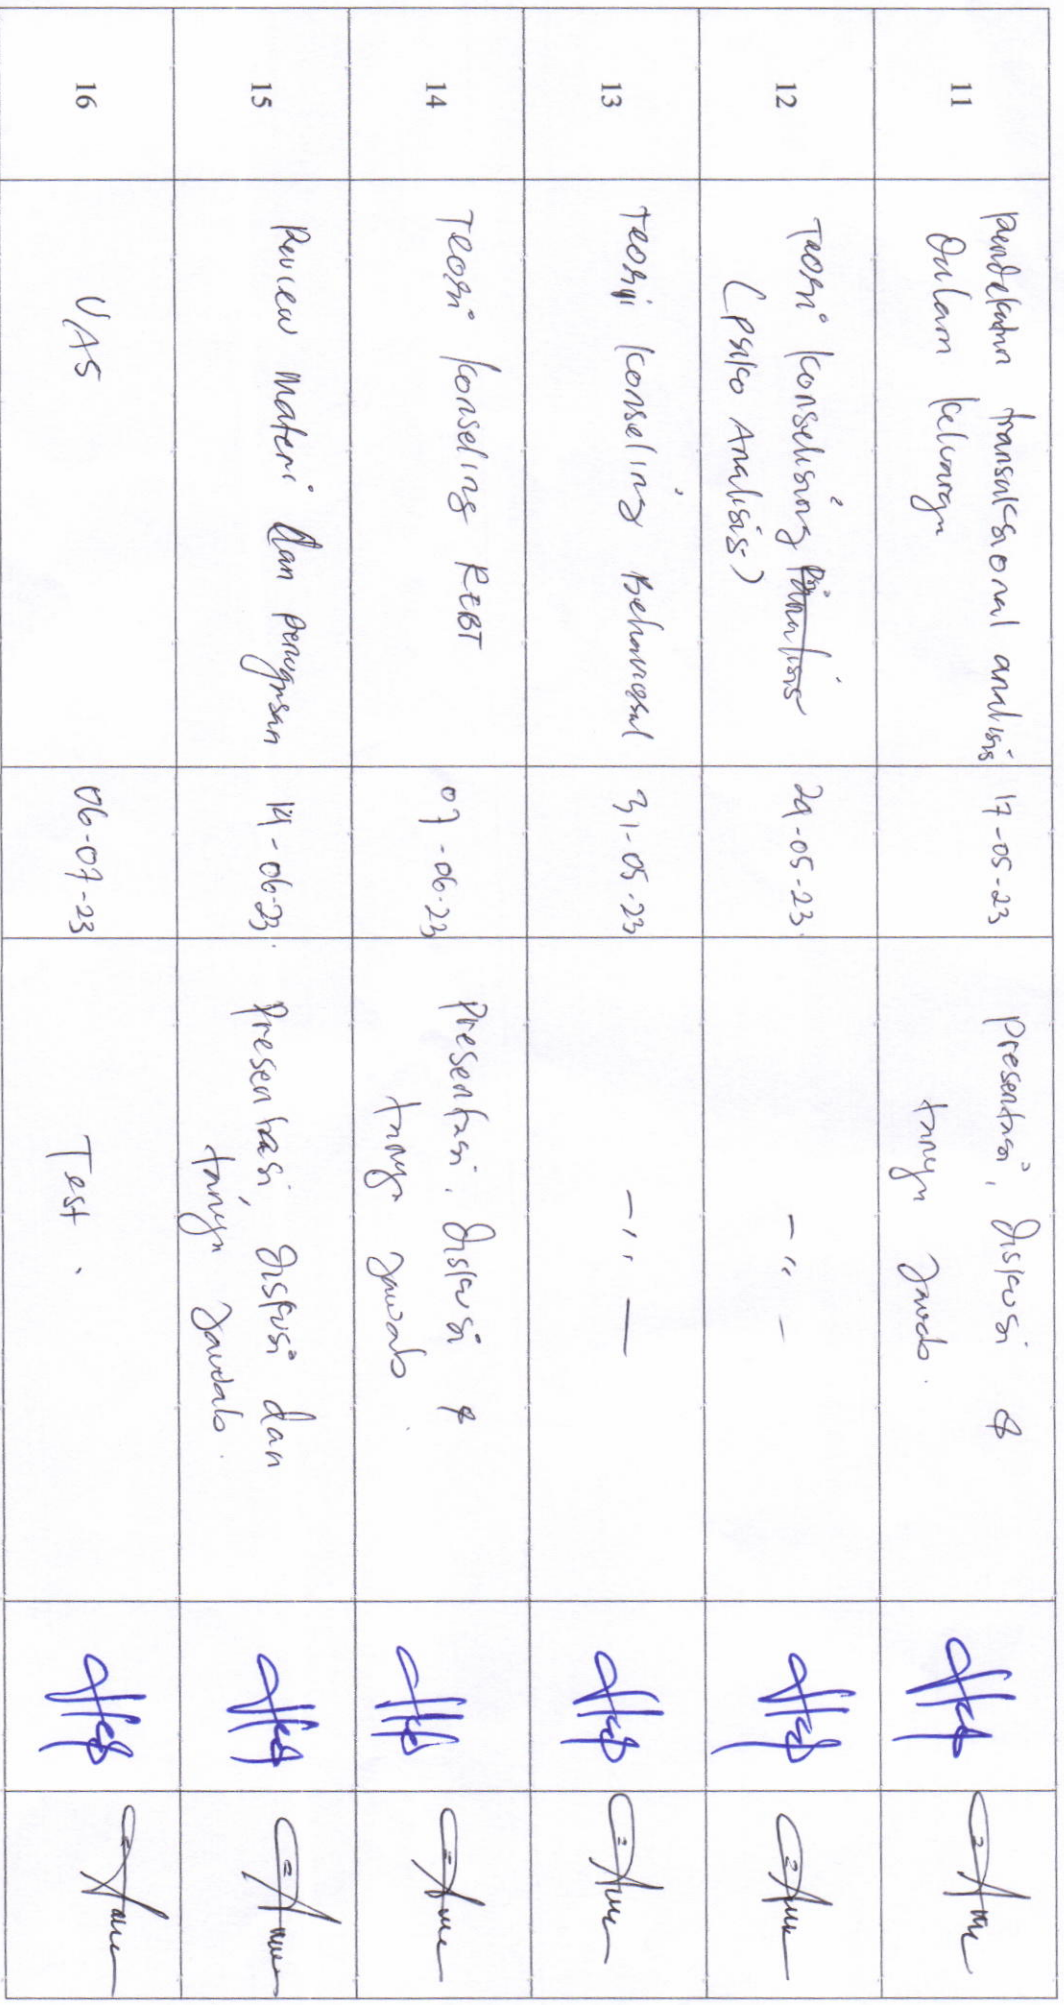 11
pendekatan transaksional analisis
Dalam keluarga
17-05-23
Presentasi, diskusi &
tanya jawab.
12
Teori konseling
(psiko Analisis)
24-05-23
- " -
13
Teori konseling Behavioral
31-05-23
- " -
14
Teori konseling REBT
07-06-23
Presentasi, diskusi &
tanya jawab.
15
Review materi dan penugasan
14-06-23.
Presentasi, diskusi dan
tanya jawab.
16
UAS
06-07-23
Test.